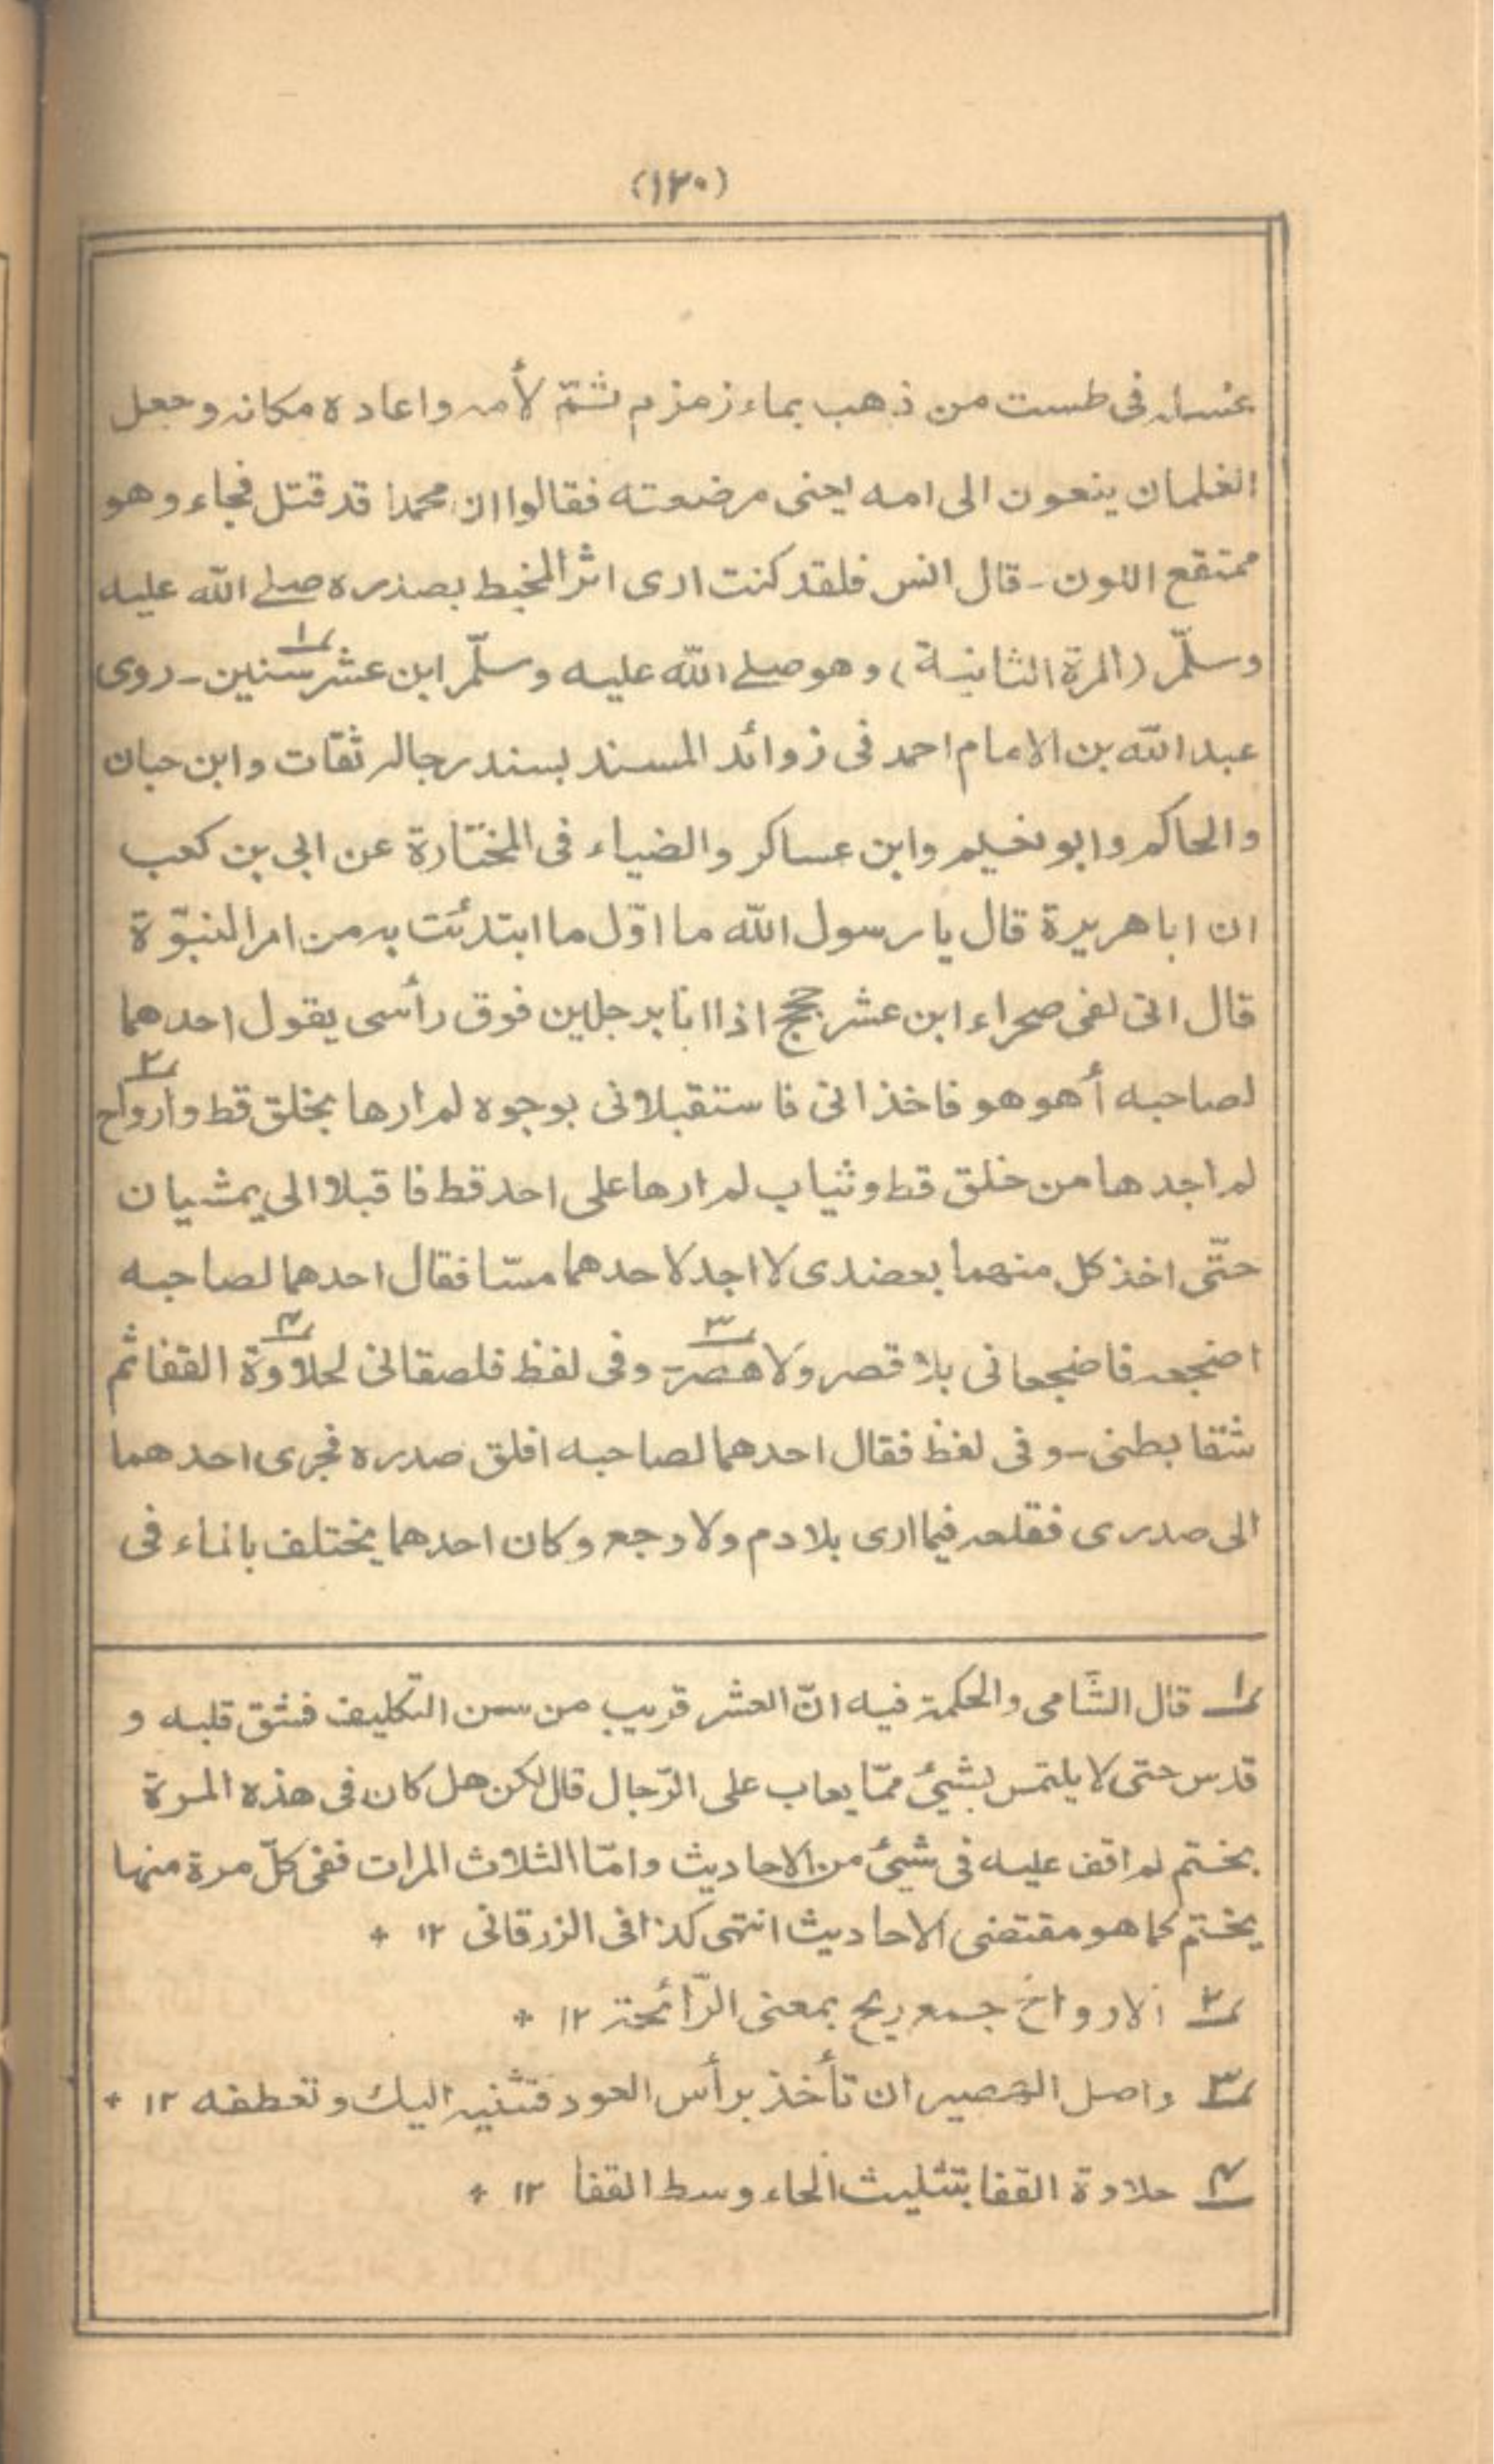 (١٢٠)
غسله فى طست من ذهب بماء زمزم ثمّ لأمه واعاده مكانه وجعل
الغلمان ينعون الى امه يعنى مرضعته فقالوا ان محمدا قد قتل فجاء وهو
ممتقع اللون - قال انس فلقد كنت ارى اثر المخيط بصدره صلى الله عليه
وسلّم (المرة الثانية) وهو صلى الله عليه وسلّم ابن عشر سنين١ - روى
عبد الله بن الامام احمد فى زوائد المسند بسند رجاله ثقات وابن حبان
والحاكم وابو نعيم وابن عساكر والضياء فى المختارة عن ابى بن كعب
ان ابا هريرة قال يا رسول الله ما اوّل ما ابتدئت به من امر النبوّة
قال انى لفى صحراء ابن عشر حجج اذا انا برجلين فوق رأسى يقول احدهما
لصاحبه أهو هو فاخذانى فاستقبلانى بوجوه لم ارها بخلق قط وارواح٢
لم اجدها من خلق قط وثياب لم ارها على احد قط فاقبلا الى يمشيان
حتّى اخذ كل منهما بعضدى لا اجد لاحدهما مسّا فقال احدهما لصاحبه
اضجعه فاضجعانى بلا قصر ولا هصر٣ - وفى لفظ فلصقانى لحلاوة٤ القفا ثم
شقا بطنى - وفى لفظ فقال احدهما لصاحبه افلق صدره فجرى احدهما
الى صدرى ففلعه فيما ارى بلا دم ولا وجع وكان احدهما يختلف بالماء فى
١ قال الشّامى والحكمة فيه انّ العشر قريب من سن التكليف فشق قلبه و
قدس حتى لا يلتمس بشيئ ممّا يعاب على الرّجال قال لكن هل كان فى هذه المرة
بختم لم اقف عليه فى شيئ من الاحاديث وامّا الثلاث المرات ففى كلّ مرة منها
يختم كما هو مقتضى الاحاديث انتهى كذا فى الزرقانى ١٢ +
٢ الارواح جمع ريح بمعنى الرّائحة ١٢ +
٣ واصل الهصر ان تأخذ برأس العود فتثنيه اليك وتعطفه ١٢ +
٤ حلاوة القفا بتثليث الحاء وسط القفا ١٢ +